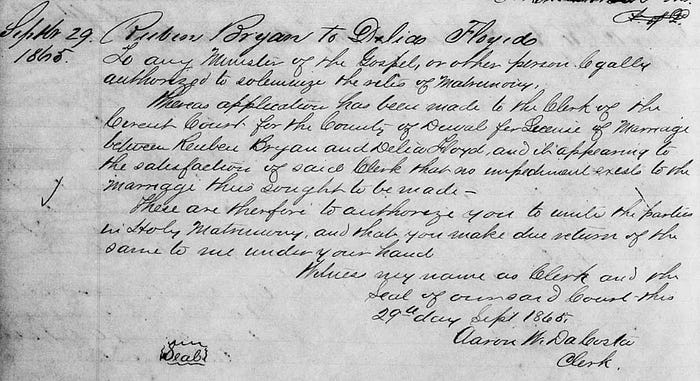 Septbr 29. Reuben Bryan to Delia Floyd
1865. To any Minister of the Gospel, or other person legally
authorized to solemnize the rites of Matrimony,
Whereas application has been made to the Clerk of the
Circuit Court for the County of Duval for License of Marriage
between Reuben Bryan and Delia Floyd, and it appearing to
the satisfaction of said Clerk that no impediment exists to the
marriage thus sought to be made -
These are therefore to authorize you to unite the parties
in Holy Matrimony, and that you make due return of the
same to me under your hand
Witness my name as Clerk and the
Seal of our said Court this
29th day Sept 1865.
Aaron W. DaCosta
Clerk.
Seal